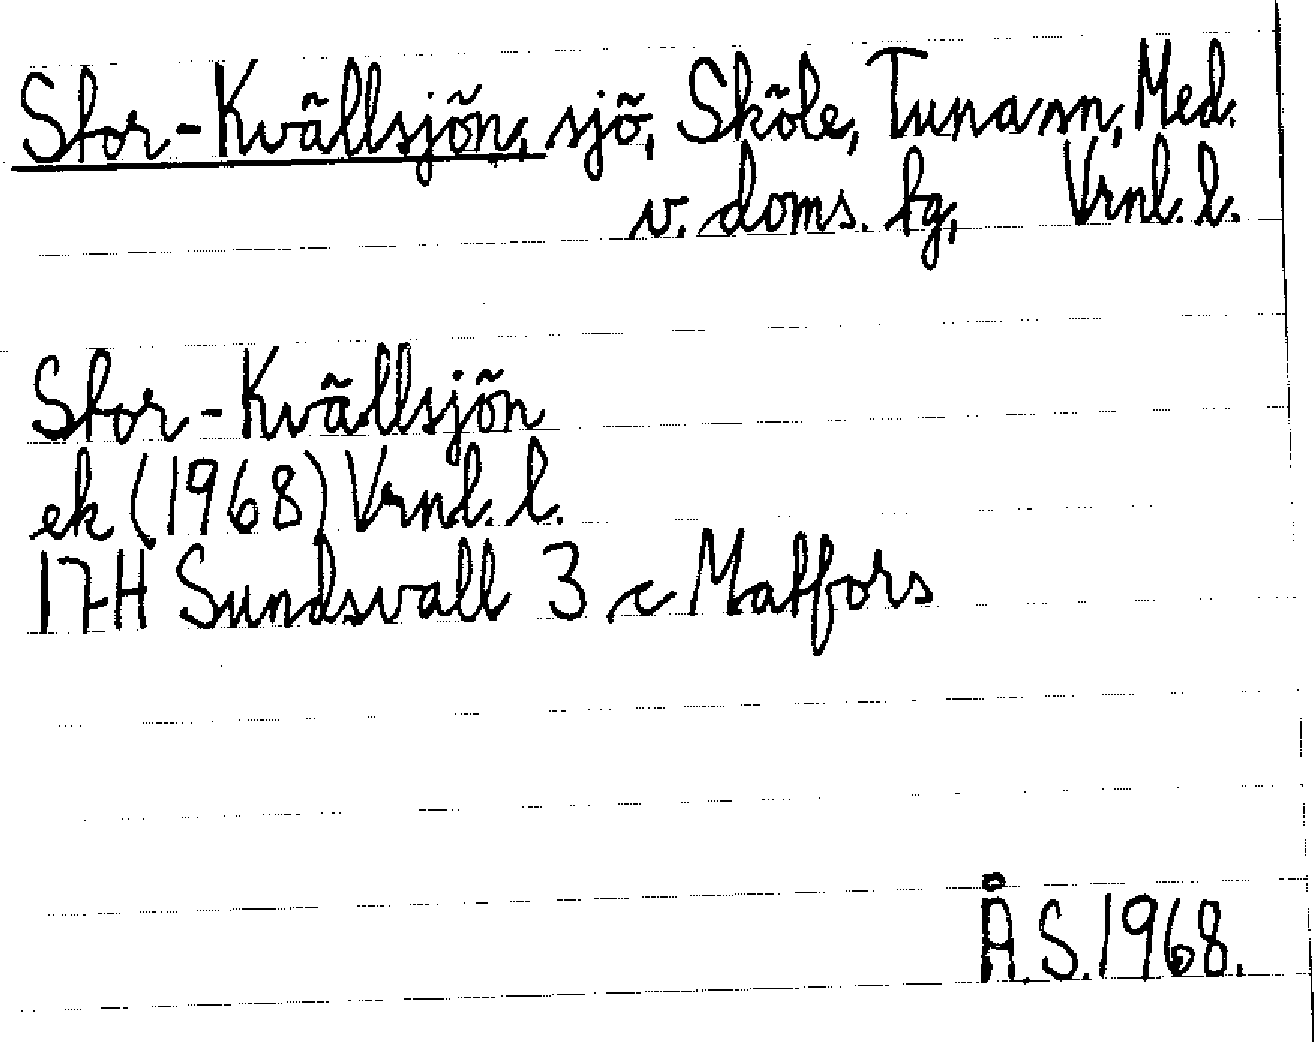 Stor-Kvällsjön, sjö, Sköle, Tuna sn, Med.
v. doms. tg, Vrnl. l.
Stor-Kvällsjön
ek (1968) Vrnl. l.
17H Sundsvall 3 c Matfors
Å.S. 1968.